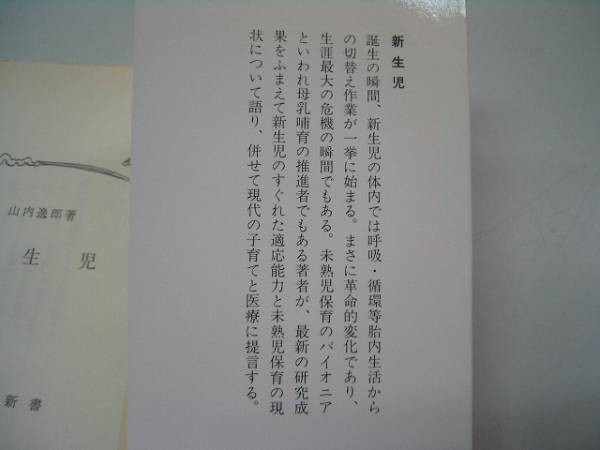 新生児
誕生の瞬間、新生児の体内では呼吸・循環等胎内生活から
の切替え作業が一挙に始まる。まさに革命的変化であり、
生涯最大の危機の瞬間でもある。未熟児保育のパイオニア
といわれ母乳哺育の推進者でもある著者が、最新の研究成
果をふまえて新生児のすぐれた適応能力と未熟児保育の現
状について語り、併せて現代の子育てと医療に提言する。
山内逸郎著
生児
新書